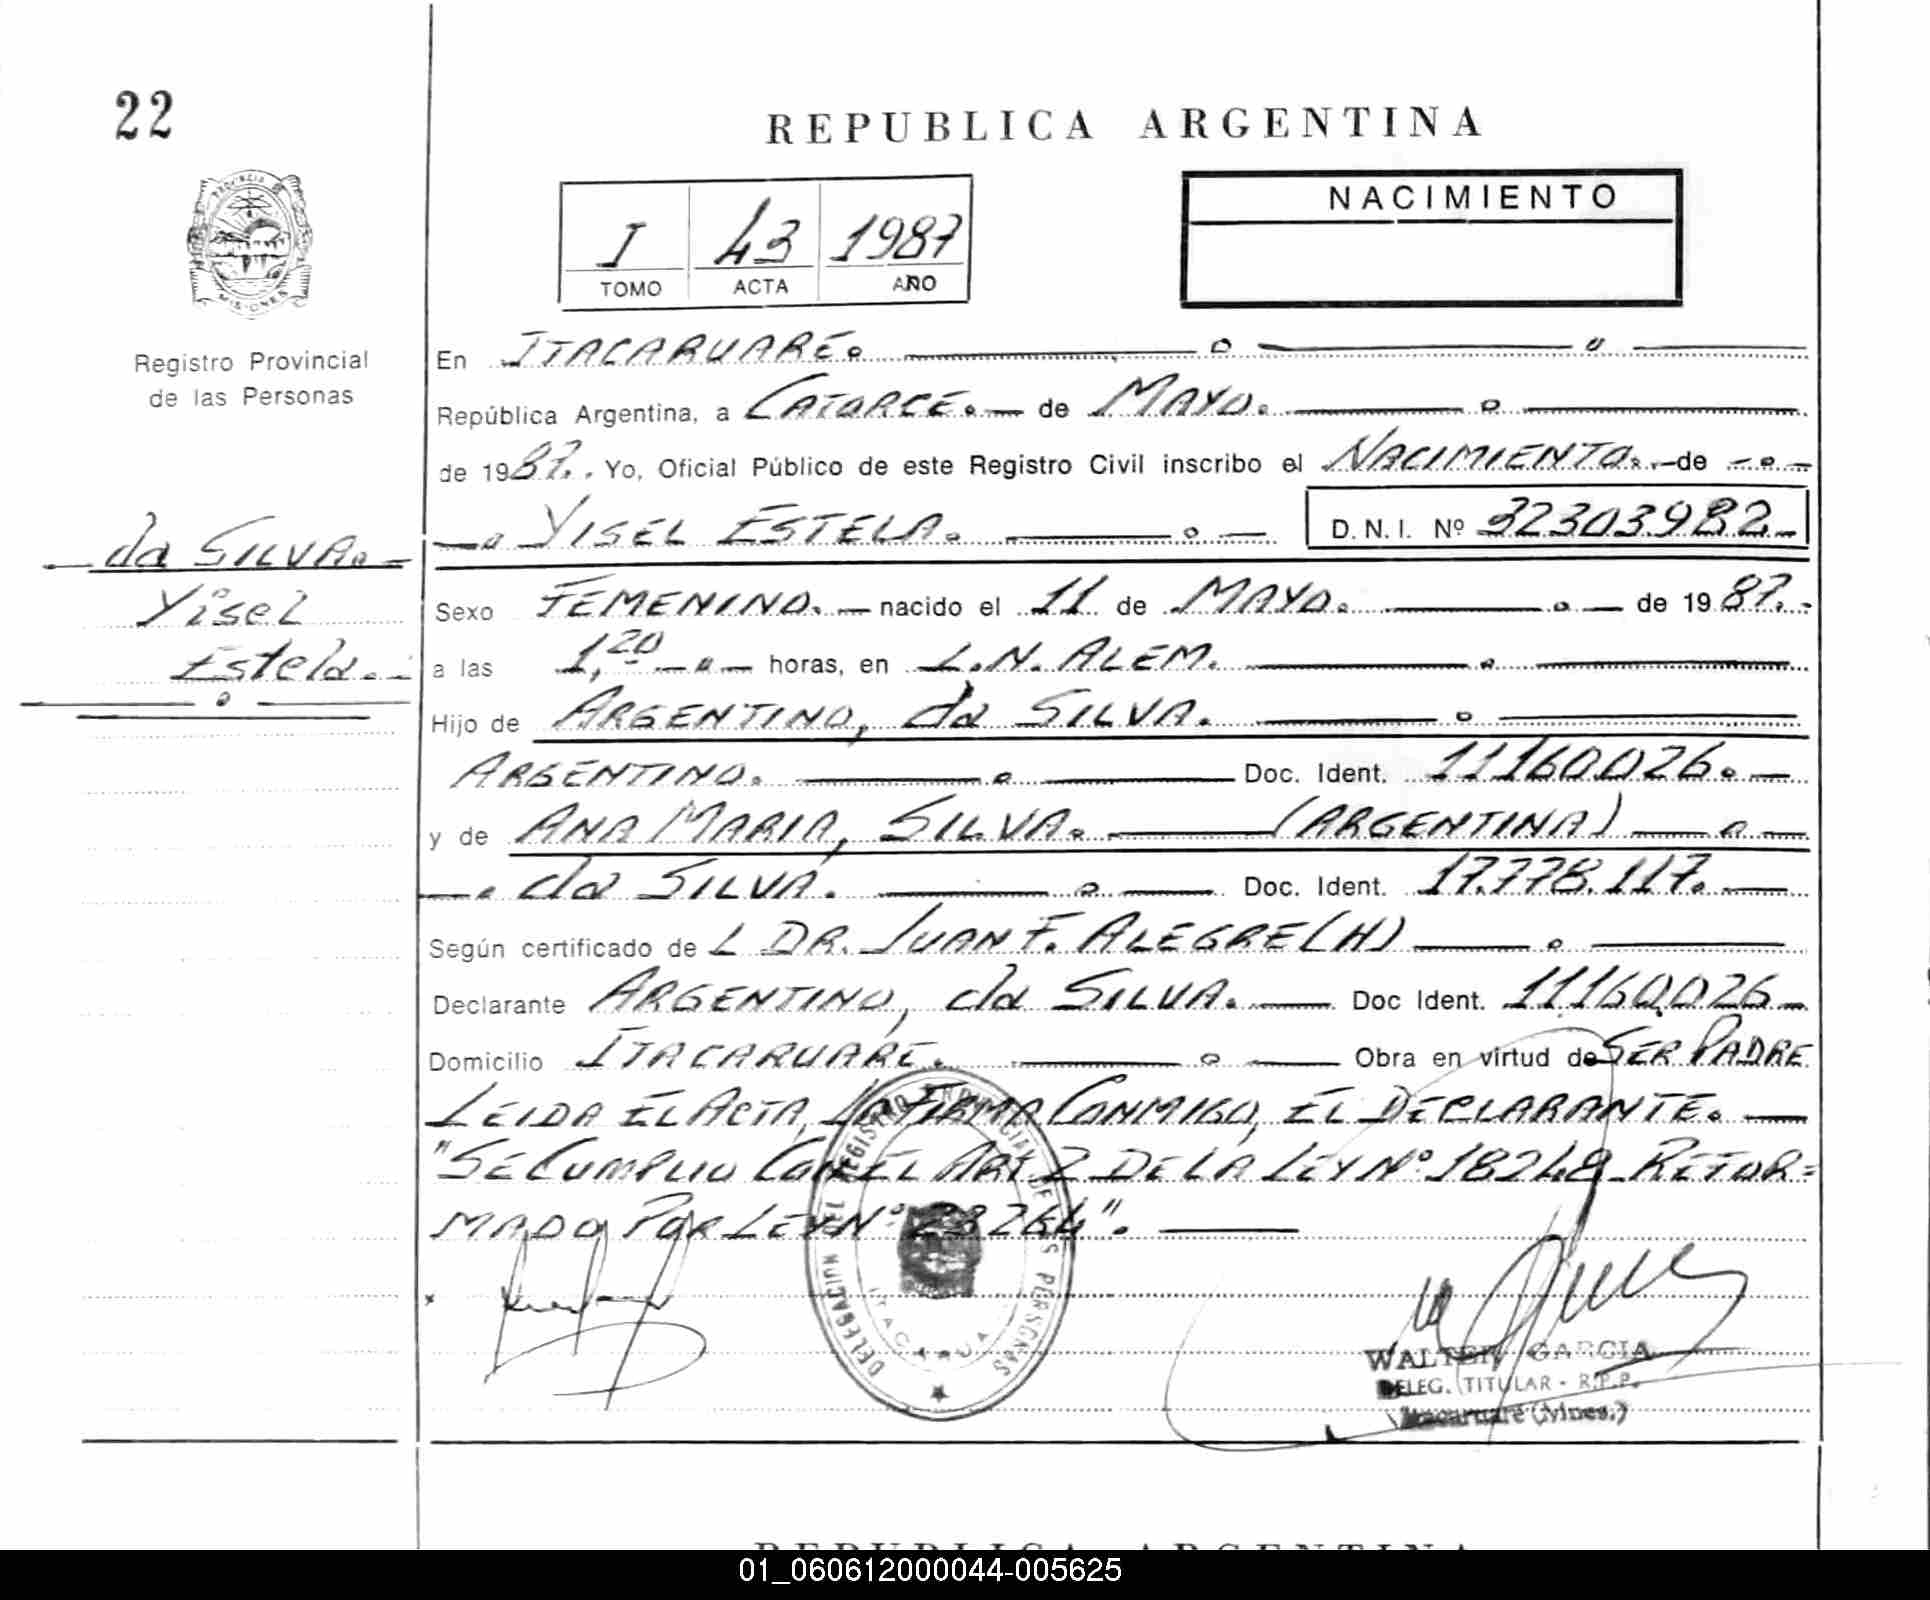 22
REPUBLICA ARGENTINA
NACIMIENTO
I 43 1987
TOMO ACTA AÑO
PROVINCIA DE
MISIONES
Registro Provincial
de las Personas
da SILVA.
Yisel
Estela.
En ITACARUARÉ.
República Argentina, a CATORCE. de MAYO.
de 1987. Yo, Oficial Público de este Registro Civil inscribo el NACIMIENTO. de
YISEL ESTELA. D.N.I. Nº 32303982
Sexo FEMENINO. nacido el 11 de MAYO. de 1987.
a las 1,20 horas, en L.N. ALEM.
Hijo de ARGENTINO, da SILVA.
ARGENTINO. Doc. Ident. 11160026.
y de ANA MARIA, SILVA. (ARGENTINA)
da SILVA. Doc. Ident. 17.778.117.
Según certificado de L DR. JUAN F. ALEGRE (H)
Declarante ARGENTINO, da SILVA. Doc Ident. 11160026
Domicilio ITACARUARE. Obra en virtud de SER PADRE
LEIDA EL ACTA, LA FIRMA CONMIGO, EL DECLARANTE.
"SE CUMPLIO CON EL ART 2 DE LA LEY Nº 18248 REFOR=
MADO POR LEY Nº 23264".
DELEGACION DEL REGISTRO PROVINCIAL DE LAS PERSONAS
WALTER GARCIA
DELEG. TITULAR - R.P.P.
Itacaruare (Mnes.)
REPUBLICA ARGENTINA
01_060612000044-005625